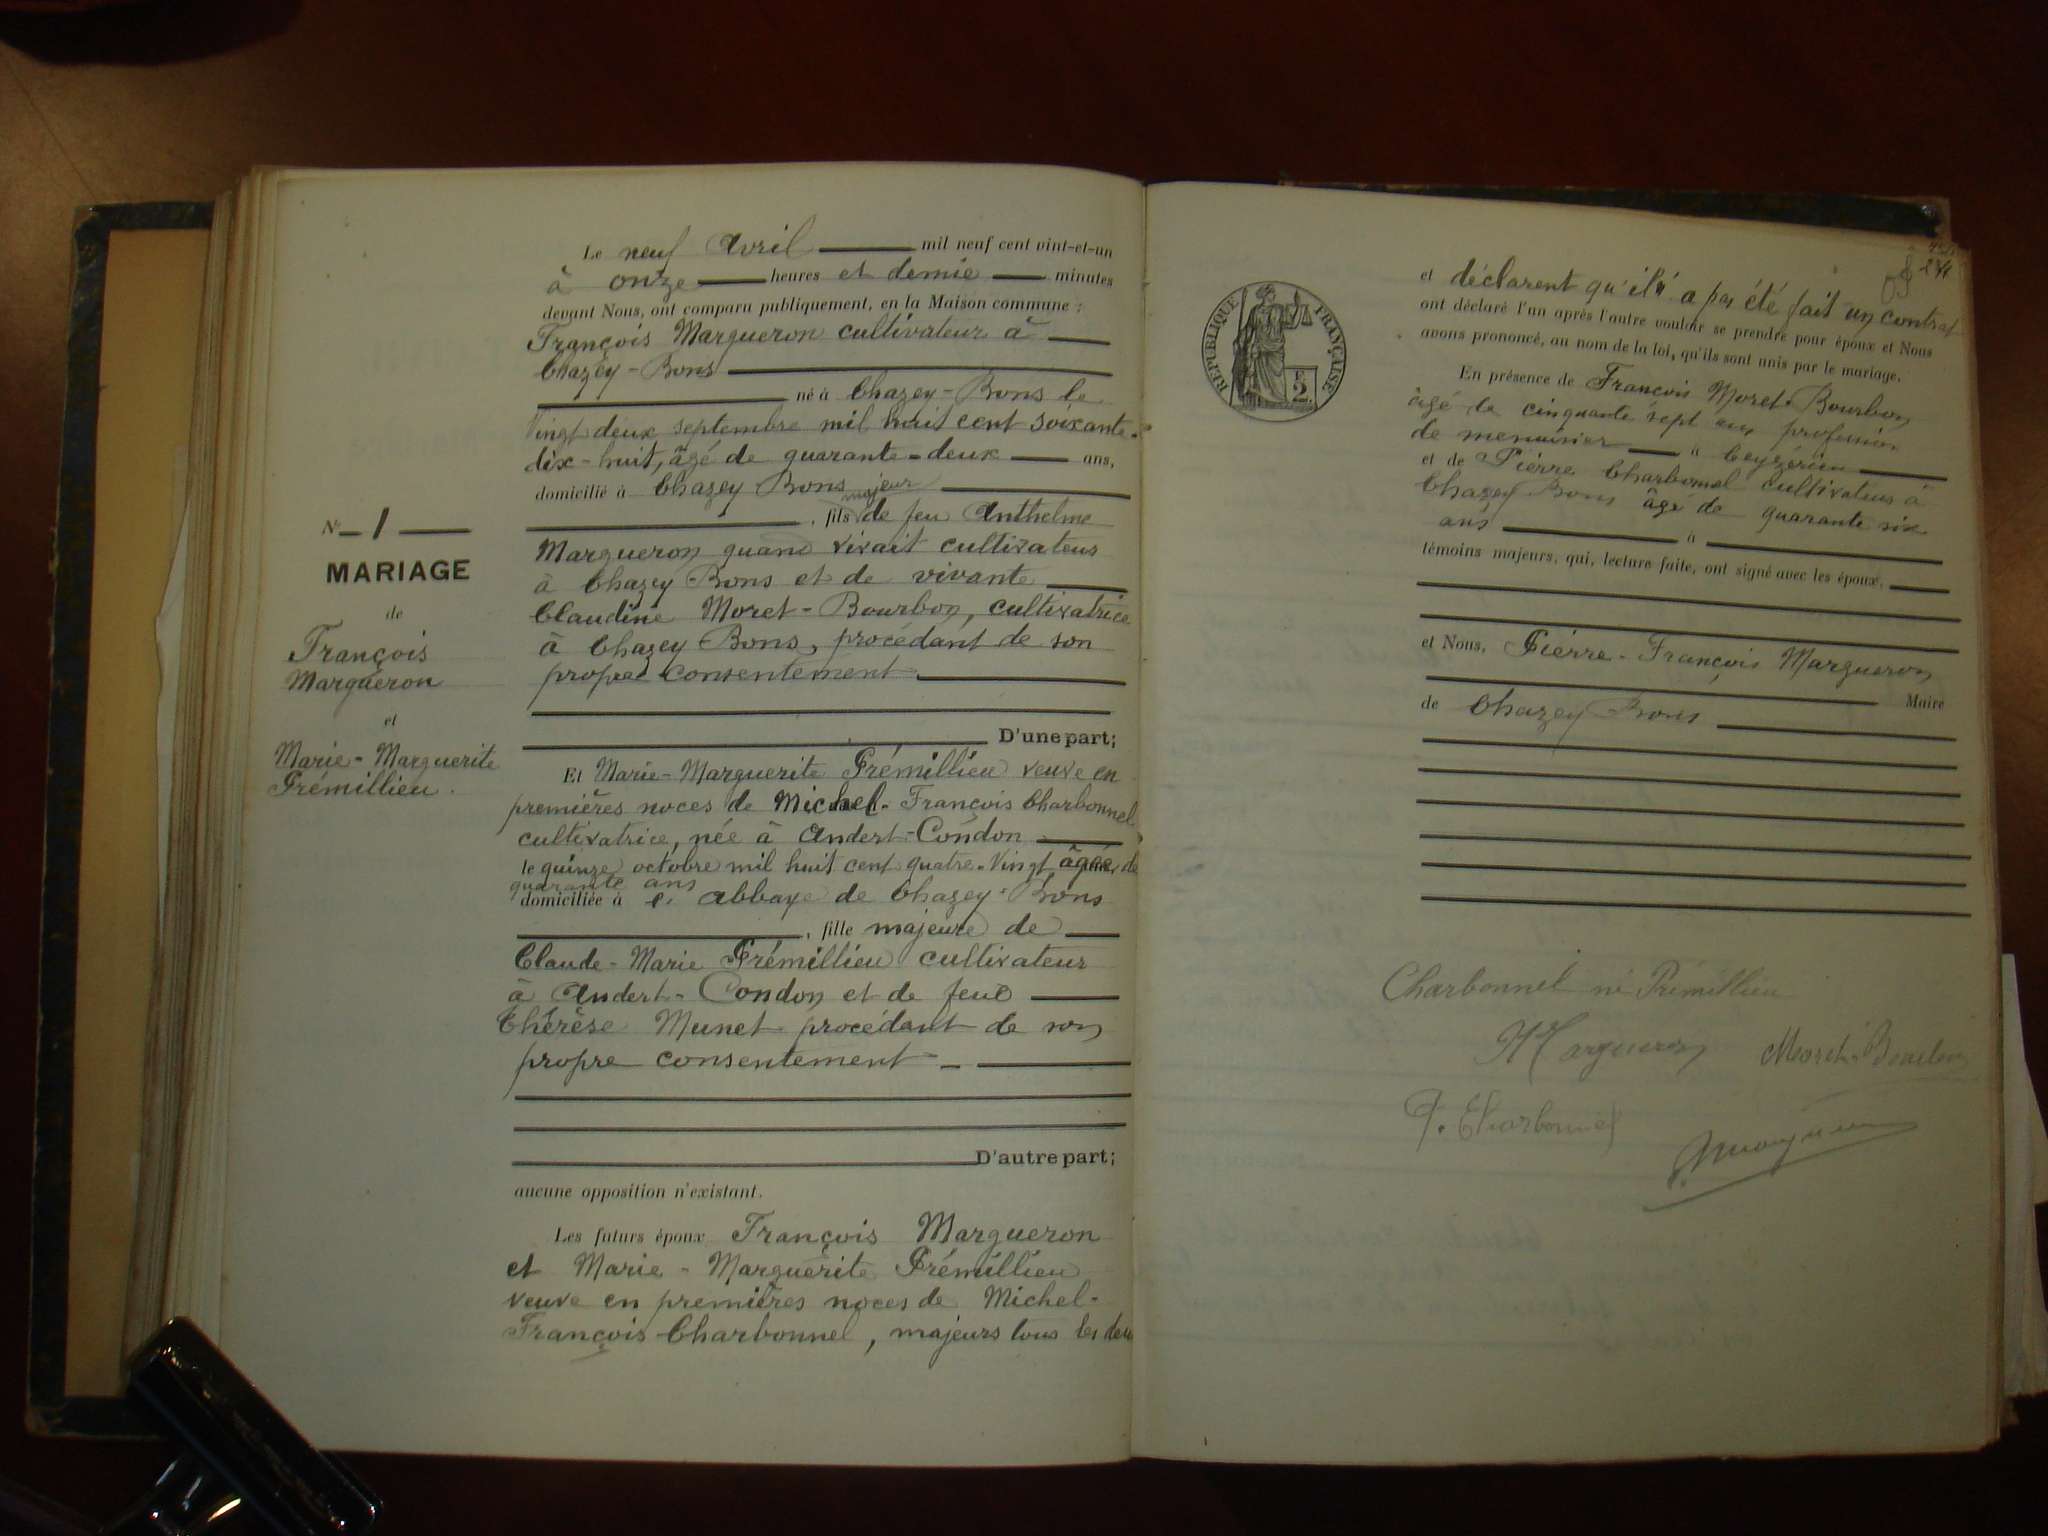 Le neuf Avril mil neuf cent vint-et-un
à onze heures et demie minutes
devant Nous, ont comparu publiquement, en la Maison commune :
François Margueron cultivateur à
Chazey-Bons
né à Chazey-Bons le
Vingt deux septembre mil huit cent soixante-
dix-huit, âgé de quarante-deux ans,
domicilié à Chazey Bons majeur
, fils de feu Anthelme
Margueron quand vivait cultivateur
à Chazey-Bons et de vivante
Claudine Moret-Bourbon, cultivatrice
à Chazey Bons, procédant de son
propre consentement
D'une part;
N° 1
MARIAGE
de
François
Margueron
et
Marie-Marguerite
Prémillieu.
Et Marie-Marguerite Prémillieu veuve en
premières noces de Michel-François Charbonnel
cultivatrice, née à Andert-Condon
le quinze octobre mil huit cent quatre-vingt âgée de
quarante ans
domiciliée à l'abbaye de Chazey-Bons
, fille majeure de
Claude-Marie Prémillieu cultivateur
à Andert-Condon et de feue
Thérèse Munet procédant de son
propre consentement
D'autre part;
aucune opposition n'existant.
Les futurs époux François Margueron
et Marie-Marguerite Prémillieu
veuve en premières noces de Michel-
François Charbonnel, majeurs tous les deux
RÉPUBLIQUE FRANÇAISE
2
et déclarent qu'il n'a pas été fait un contrat
ont déclaré l'un après l'autre vouloir se prendre pour époux et Nous
avons prononcé, au nom de la loi, qu'ils sont unis par le mariage.
En présence de François Moret-Bourbon
âgé de cinquante sept ans profession
de menuisier à Ceyzérieu
et de Pierre Charbonnel cultivateur à
Chazey Bons âgé de quarante six
ans à
témoins majeurs, qui, lecture faite, ont signé avec les époux.
et Nous, Pierre-François Margueron
Maire
de Chazey-Bons
Charbonnel né Prémillieu
Margueron Moret-Bourbon
P. Charbonnel